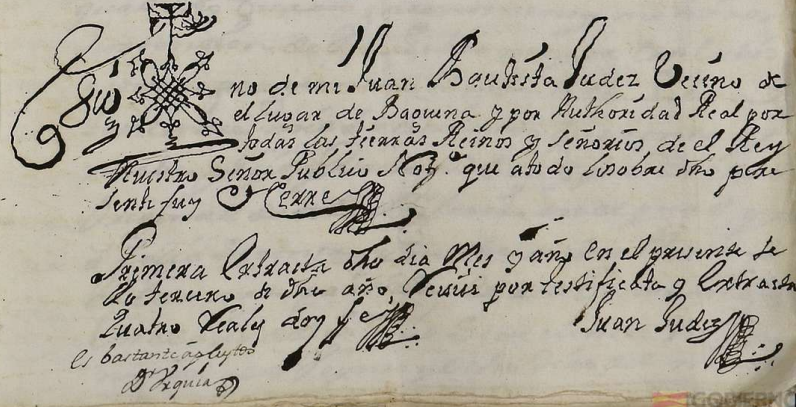 Sig no de mi Juan Bautista Judez Vecino de
el lugar de Baguena y por Authoridad Real por
todas las tierras Reinos y señorios de el Rey
Nuestro Señor Publico Not.º que a todo lo sobre dho pre
sente fuy et Cerre
Primera Extracta dho dia Mes y año en el presente Se
llo tercero de dho año, Reciví por testificata y Extracta
Quatro Reales doy fe
Juan Judez
es bastante
D.r Urquia
GOBIERNO